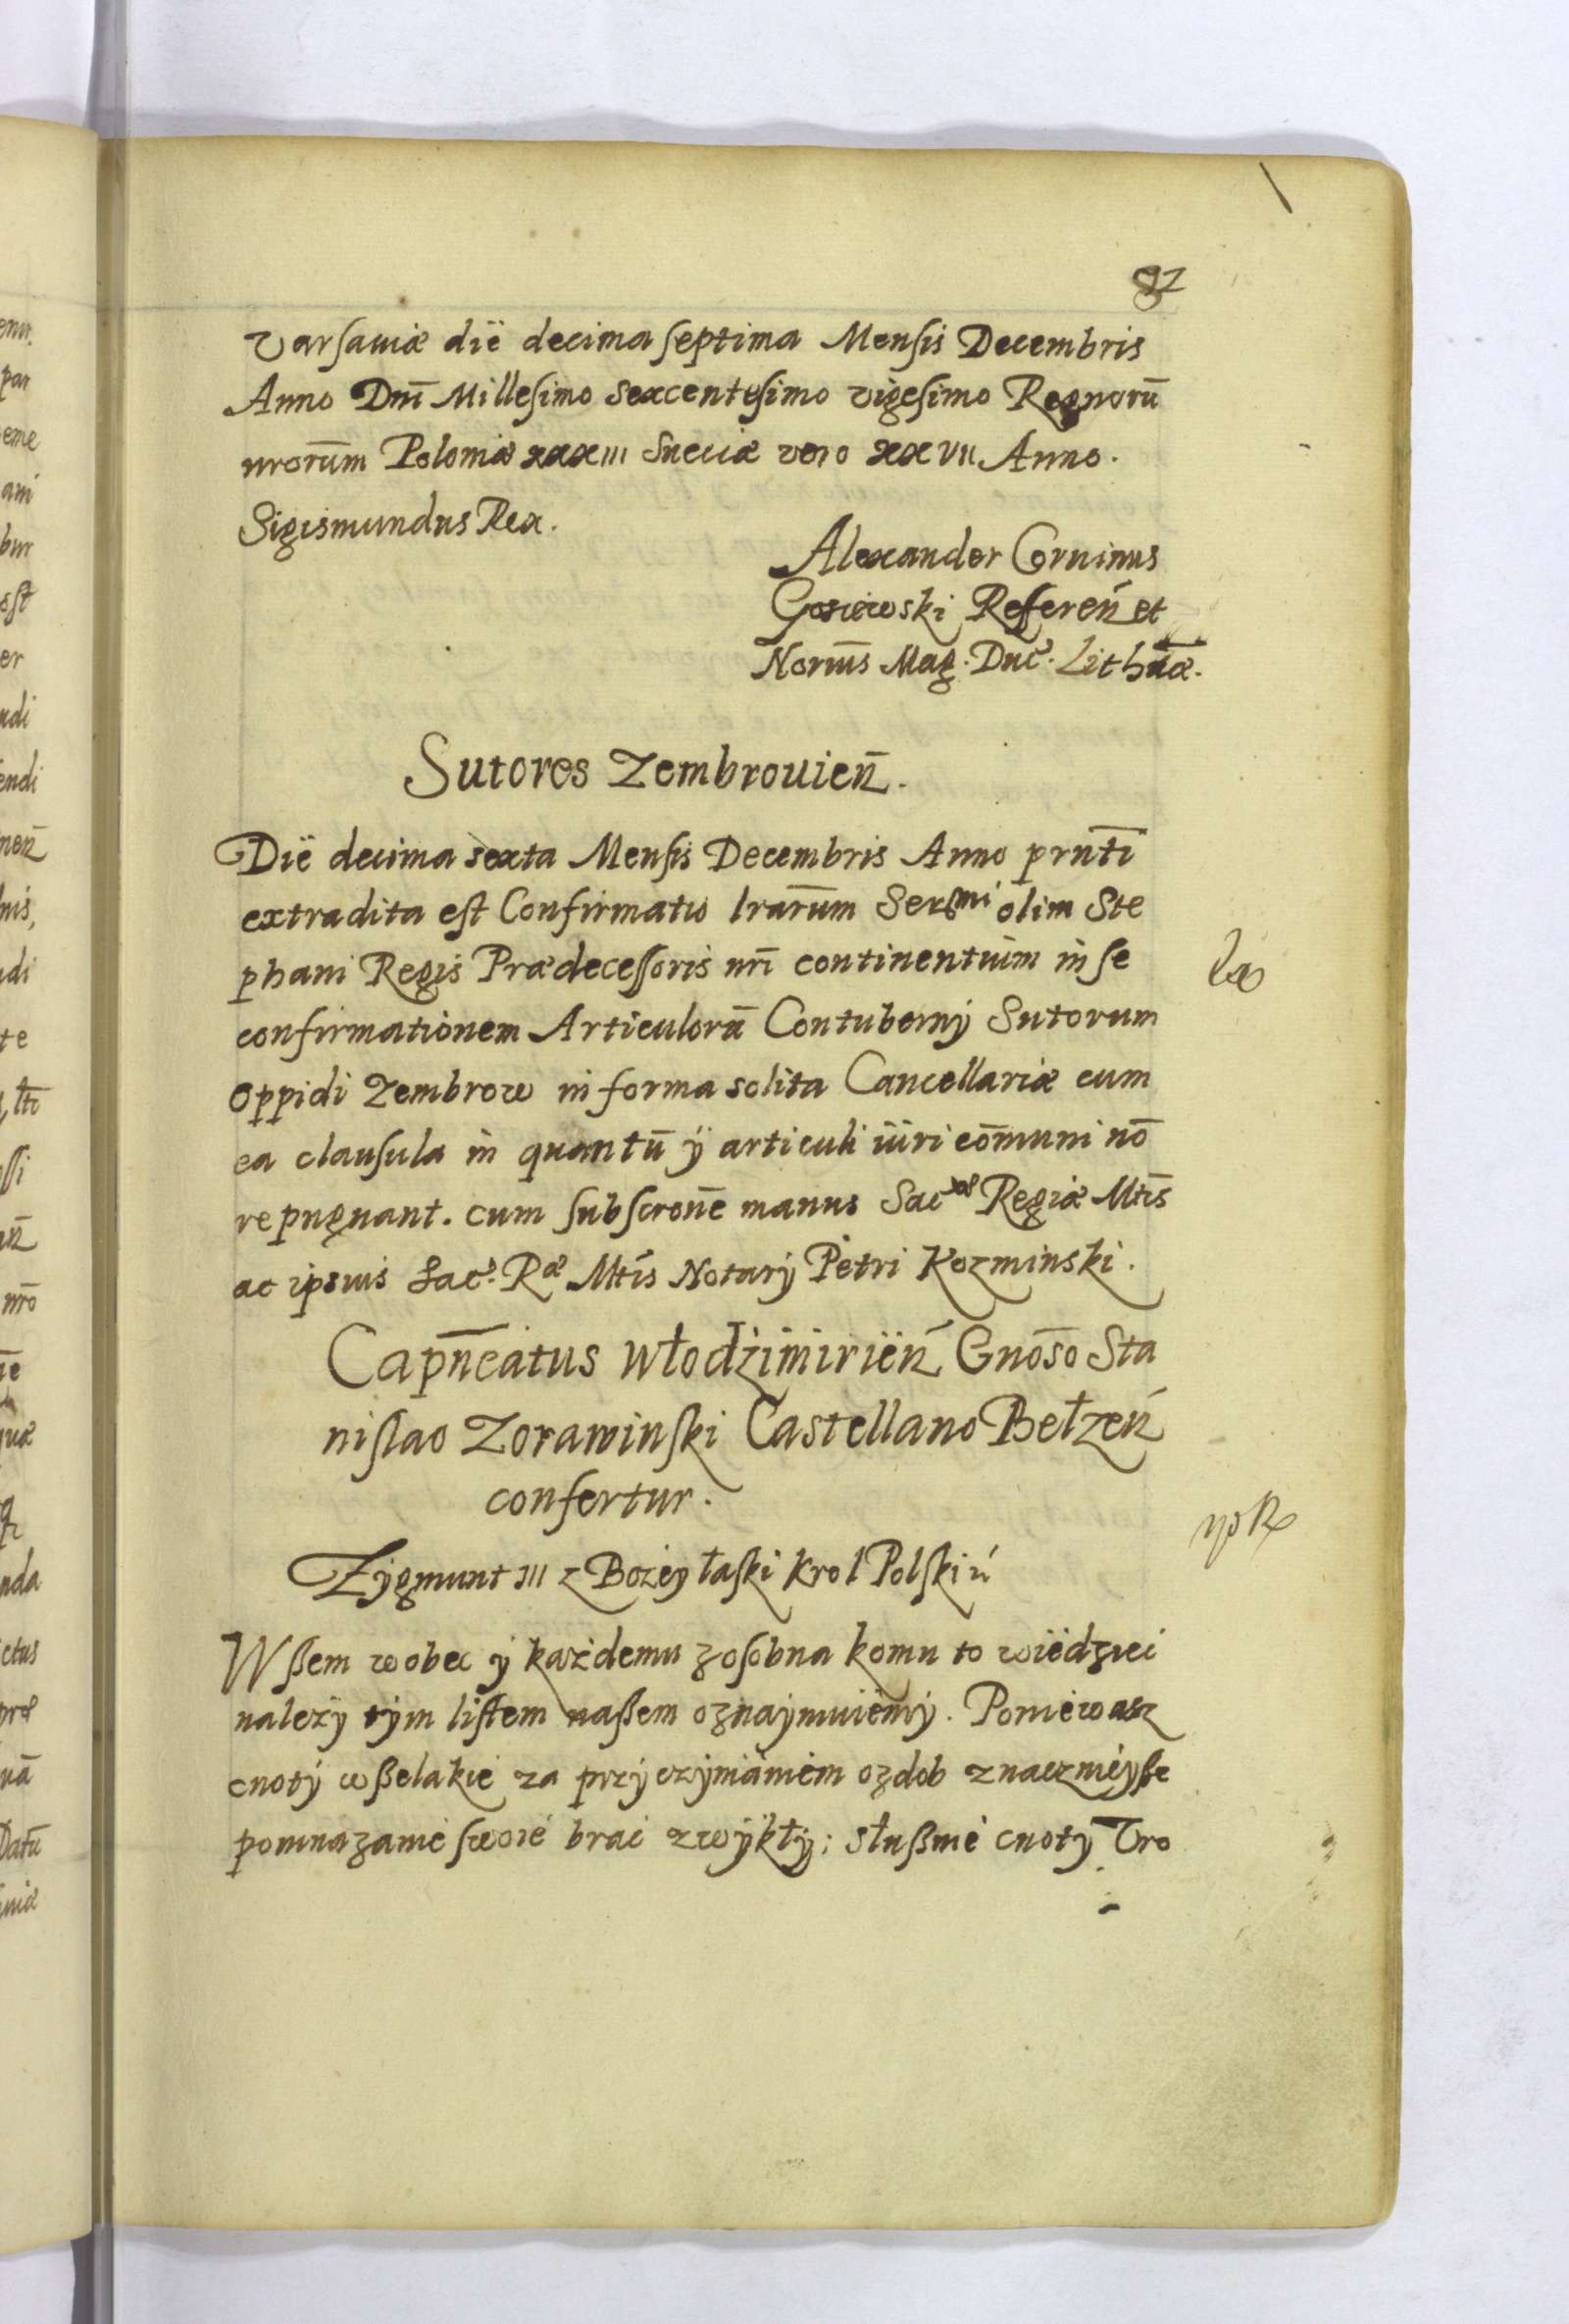 92
Varsaviæ dië decima septima Mensis Decembris
Anno Dnī Millesimo sexcentesimo vigesimo Regnorū
nrorūm Poloniæ xxxIII Sueciæ vero xxVII Anno.
Sigismundus Rex.
Alexander Corvinus
Gosiewski Referen̄ et
Norius Mag. Duc. Lithuæ.
Sutores Zembrovien̄.
Dië decima sexta Mensis Decembris Anno prnti
extradita est Confirmatio lrarūm Serᵐⁱ olim Ste
phani Regis Prædecessoris nrī continentium in se
confirmationem Articulorū Contubernÿ Sutorum
oppidi Zembrow in forma solita Cancellariæ cum
ea clausula in quantū ÿ articuli iuri cōmuni nō
repugnant. cum subscrone manus Sacʳᵃᵉ Regiæ Mtis
ac ipsius Sac. Rᵃᵉ Mtis Notarÿ Petri Kozminski.
Capn̄eatus Włodzimirien̄ Gnōso Sta
nislao Zorawinski Castellano Bełzen̄
confertur.
Zÿgmunt III z Bożeÿ łaski Krol Polski ń
Wßem wobec ÿ każdemu zosobna komu to wiëdziei
należÿ tÿm listem naßem oznaÿmuiëmÿ. Poniewasz
cnotÿ wßelakie za przÿczÿnianiem ozdob znaczniëÿße
pomnazanie swoie brac zwÿkłÿ: słußnie cnotÿ Vro